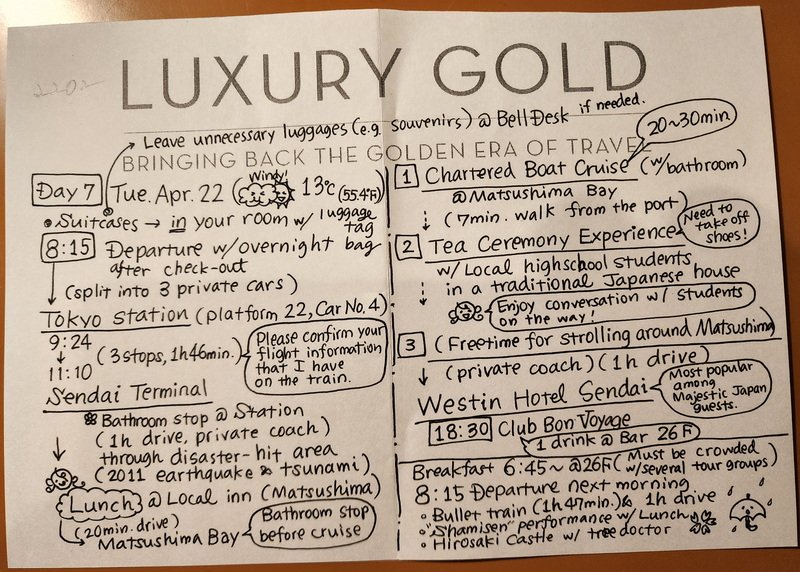 2202
LUXURY GOLD
Leave unnecessary luggages (e.g. souvenirs) @ Bell Desk if needed.
BRINGING BACK THE GOLDEN ERA OF TRAVEL
Day 7 Tue. Apr. 22 (Windy! 13°C (55.4°F)
• Suitcases → in your room w/ luggage tag
8:15 Departure w/overnight bag
after check-out
(split into 3 private cars)
Tokyo Station (platform 22, Car No. 4)
9:24
↓ (3 stops, 1h46min.)
11:10
Please confirm your
flight information
that I have
on the train.
Sendai Terminal
Bathroom stop @ Station
(1h drive, private coach)
through disaster-hit area
(2011 earthquake & tsunami)
Lunch @ Local inn (Matsushima)
(20min. drive)
Matsushima Bay
Bathroom stop
before cruise
20~30min
1 Chartered Boat Cruise (w/bathroom)
@Matsushima Bay
(7min. walk from the port)
2 Tea Ceremony Experience
Need to
take off
shoes!
w/ Local highschool students
in a traditional Japanese house
Enjoy conversation w/ students
on the way!
3 (Freetime for strolling around Matsushima)
(private coach) (1h drive)
Westin Hotel Sendai
Most popular
among
Majestic Japan
guests.
18:30 Club Bon Voyage
1 drink @ Bar 26F
Breakfast 6:45~ @26F (Must be crowded
w/several tour groups)
8:15 Departure next morning
• Bullet train (1h47min.) & 1h drive
• "Shamisen" performance w/ Lunch
• Hirosaki Castle w/ tree doctor